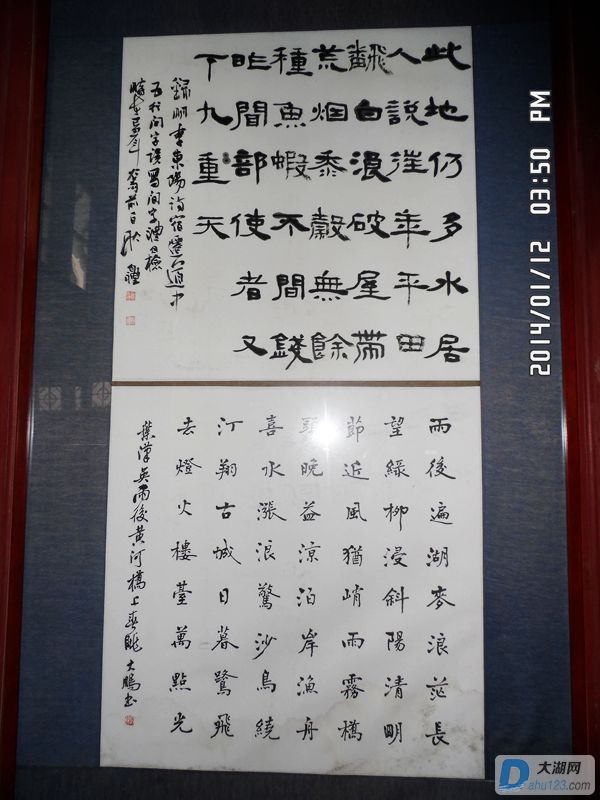 此地仍多水居
人說往年平田
飜白浪破屋帶
荒烟黍穀無餘
種魚蝦不間錢
昨間部使者又
下九重天
錄明李東陽詩宿遷道中
五行間字誤寫間字
雨後遍湖麥浪茫長
望綠柳浸斜陽清明
節近風猶峭雨霧橋
頭晚益涼泊岸漁舟
喜水漲浪驚沙鳥繞
汀翔古城日暮鷺飛
去燈火樓臺萬點光
葉漢英雨後黃河橋上春眺 大鵬書
2014/01/12 03:50 PM
大湖网
Dahu123.com